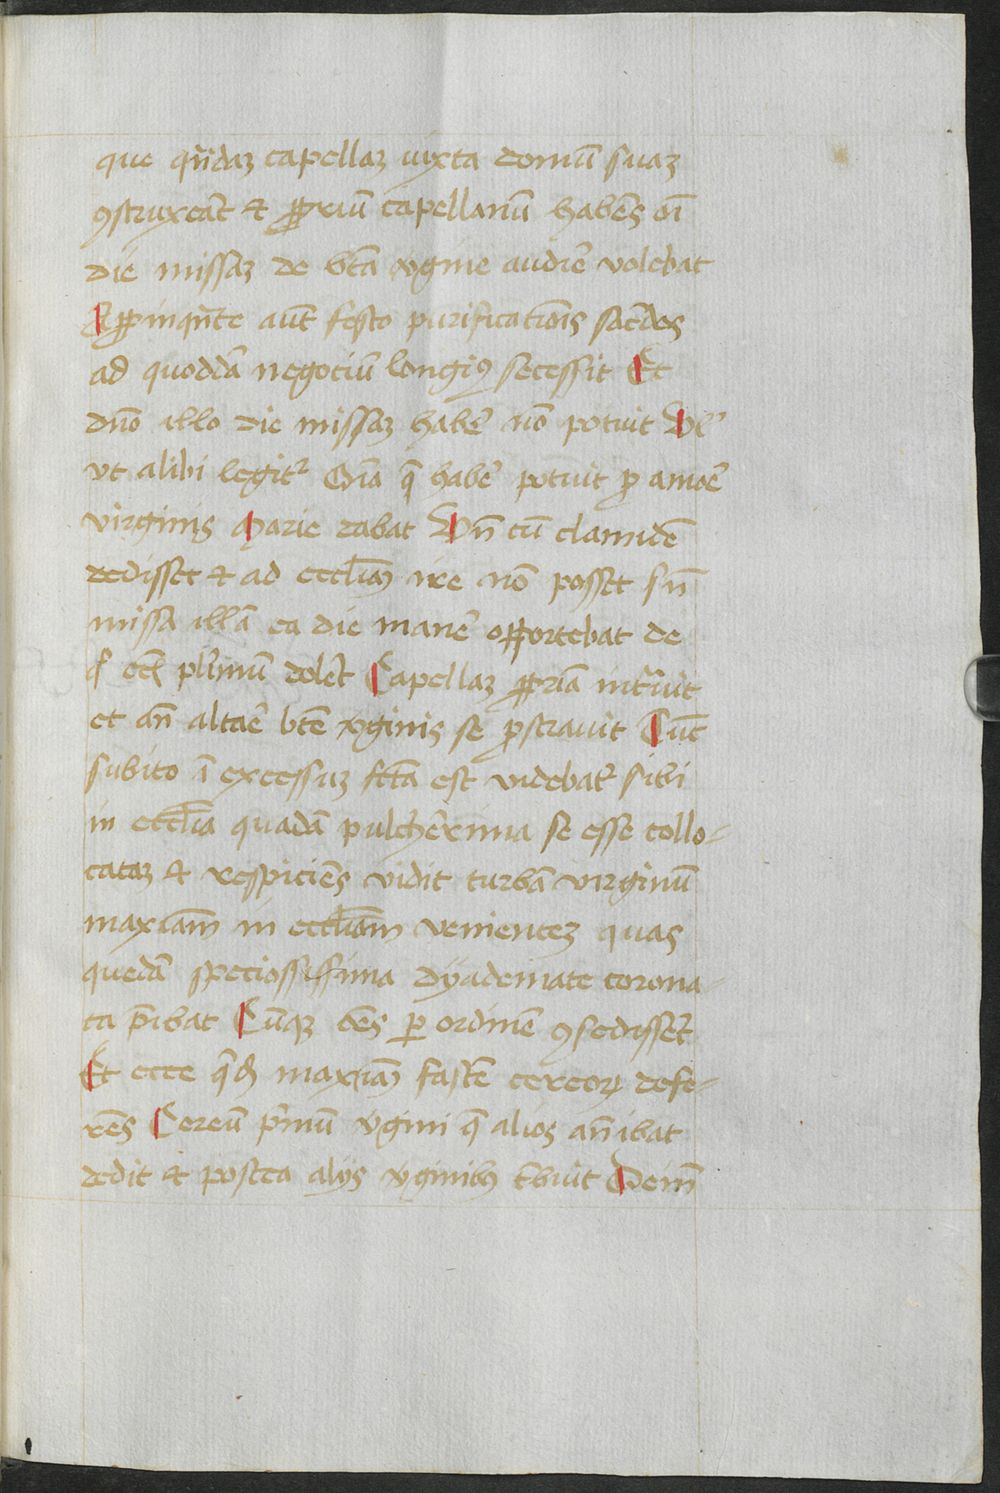 que qñdaz capellaz iuxta domū suaz
ꝯstruxerāt ⁊ ꝓpriū capellanū habēs oī
die missaz de bt̄a v̄gine audire̅ volebat
Apropinqn̄te aut̄ festo purificatiōis sac̄dos
ad quoddā negociū longiꝰ secessit Et
dn̄o illo die missaz habe̅ nō potuit Vl'
vt alibi legit᷑ Oīa q̄ habe̅ potuit ꝓ amoe̅
virginis Marie dabat Vn̄ cū clamidē
dedisset ⁊ ad eccl̄iaꝫ ire nō posset sn̄
missa illā ea die mane̅ opportebat de
q° ec̄ pl̄imū dolet̄ Capellaz ꝓpriā int̄uit
et an̄ altae̅ bt̄e v̄ginis se ꝓstrauit Tūc
subito ī excessuz fc̄ta est videbat᷑ sibi
in eccl̄ia quadā pulcherrima se esse collo-
cataz ⁊ respiciēs vidit turbā virginū
maxīam in eccl̄iam venientez quas
quedā speciossissima dyademate corona-
ta p̄ibat Cūqꝫ oēs ꝑ ordinē ꝯsedissēt
Et ecce q̄dā maxīaꝫ fascē cereoꝝ defe-
rēs Cereū p̄mū v̄gini q̄ alios an̄ibat
dedit ⁊ postea alijs v̄ginibꝰ t̄buit Deīn̄